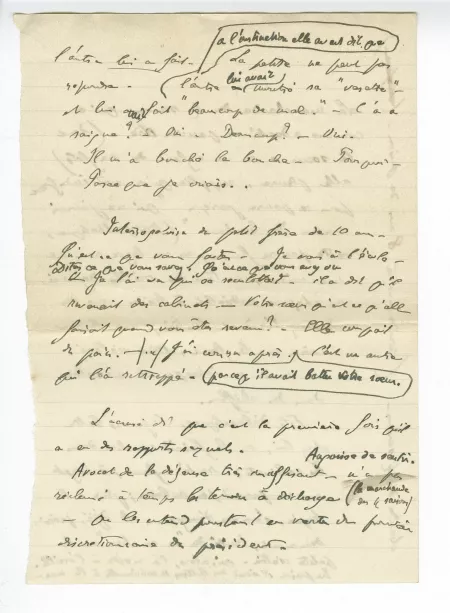 à l'instruction elle avait dit que
l'autre lui a fait - La petite ne peut pas
répondre - l'autre lui avait montré sa "
et lui avait fait "beaucoup de mal." - ça a
saigné? - Oui - Beaucoup? - Oui.
Il m'a bouché la bouche - Pourquoi -
Parce que je criais..
Interrogatoire du petit frère de 10 ans -
Qu'est-ce que vous faites - Je vais à l'école -
dites ce que vous savez, qu'avez vous vu
Je l'ai vu qui se - il a dit qu'il
revenait des cabinets - Votre sœur qu'est ce qu'elle
faisait quand vous êtes revenu? - Elle
- J'ai couru après. C'est un autre
qui l'a rattrapé - parce qu'il avait battu votre sœur.
L'accusé dit que c'est la première fois qu'il
a eu des rapports sexuels.
Avocat de la défense très insuffisant - n'a pas
réclamé à temps les témoins à décharge (la marchande
des 4 saisons)
- On les entend pourtant en vertu du pouvoir
discrétionnaire du président -